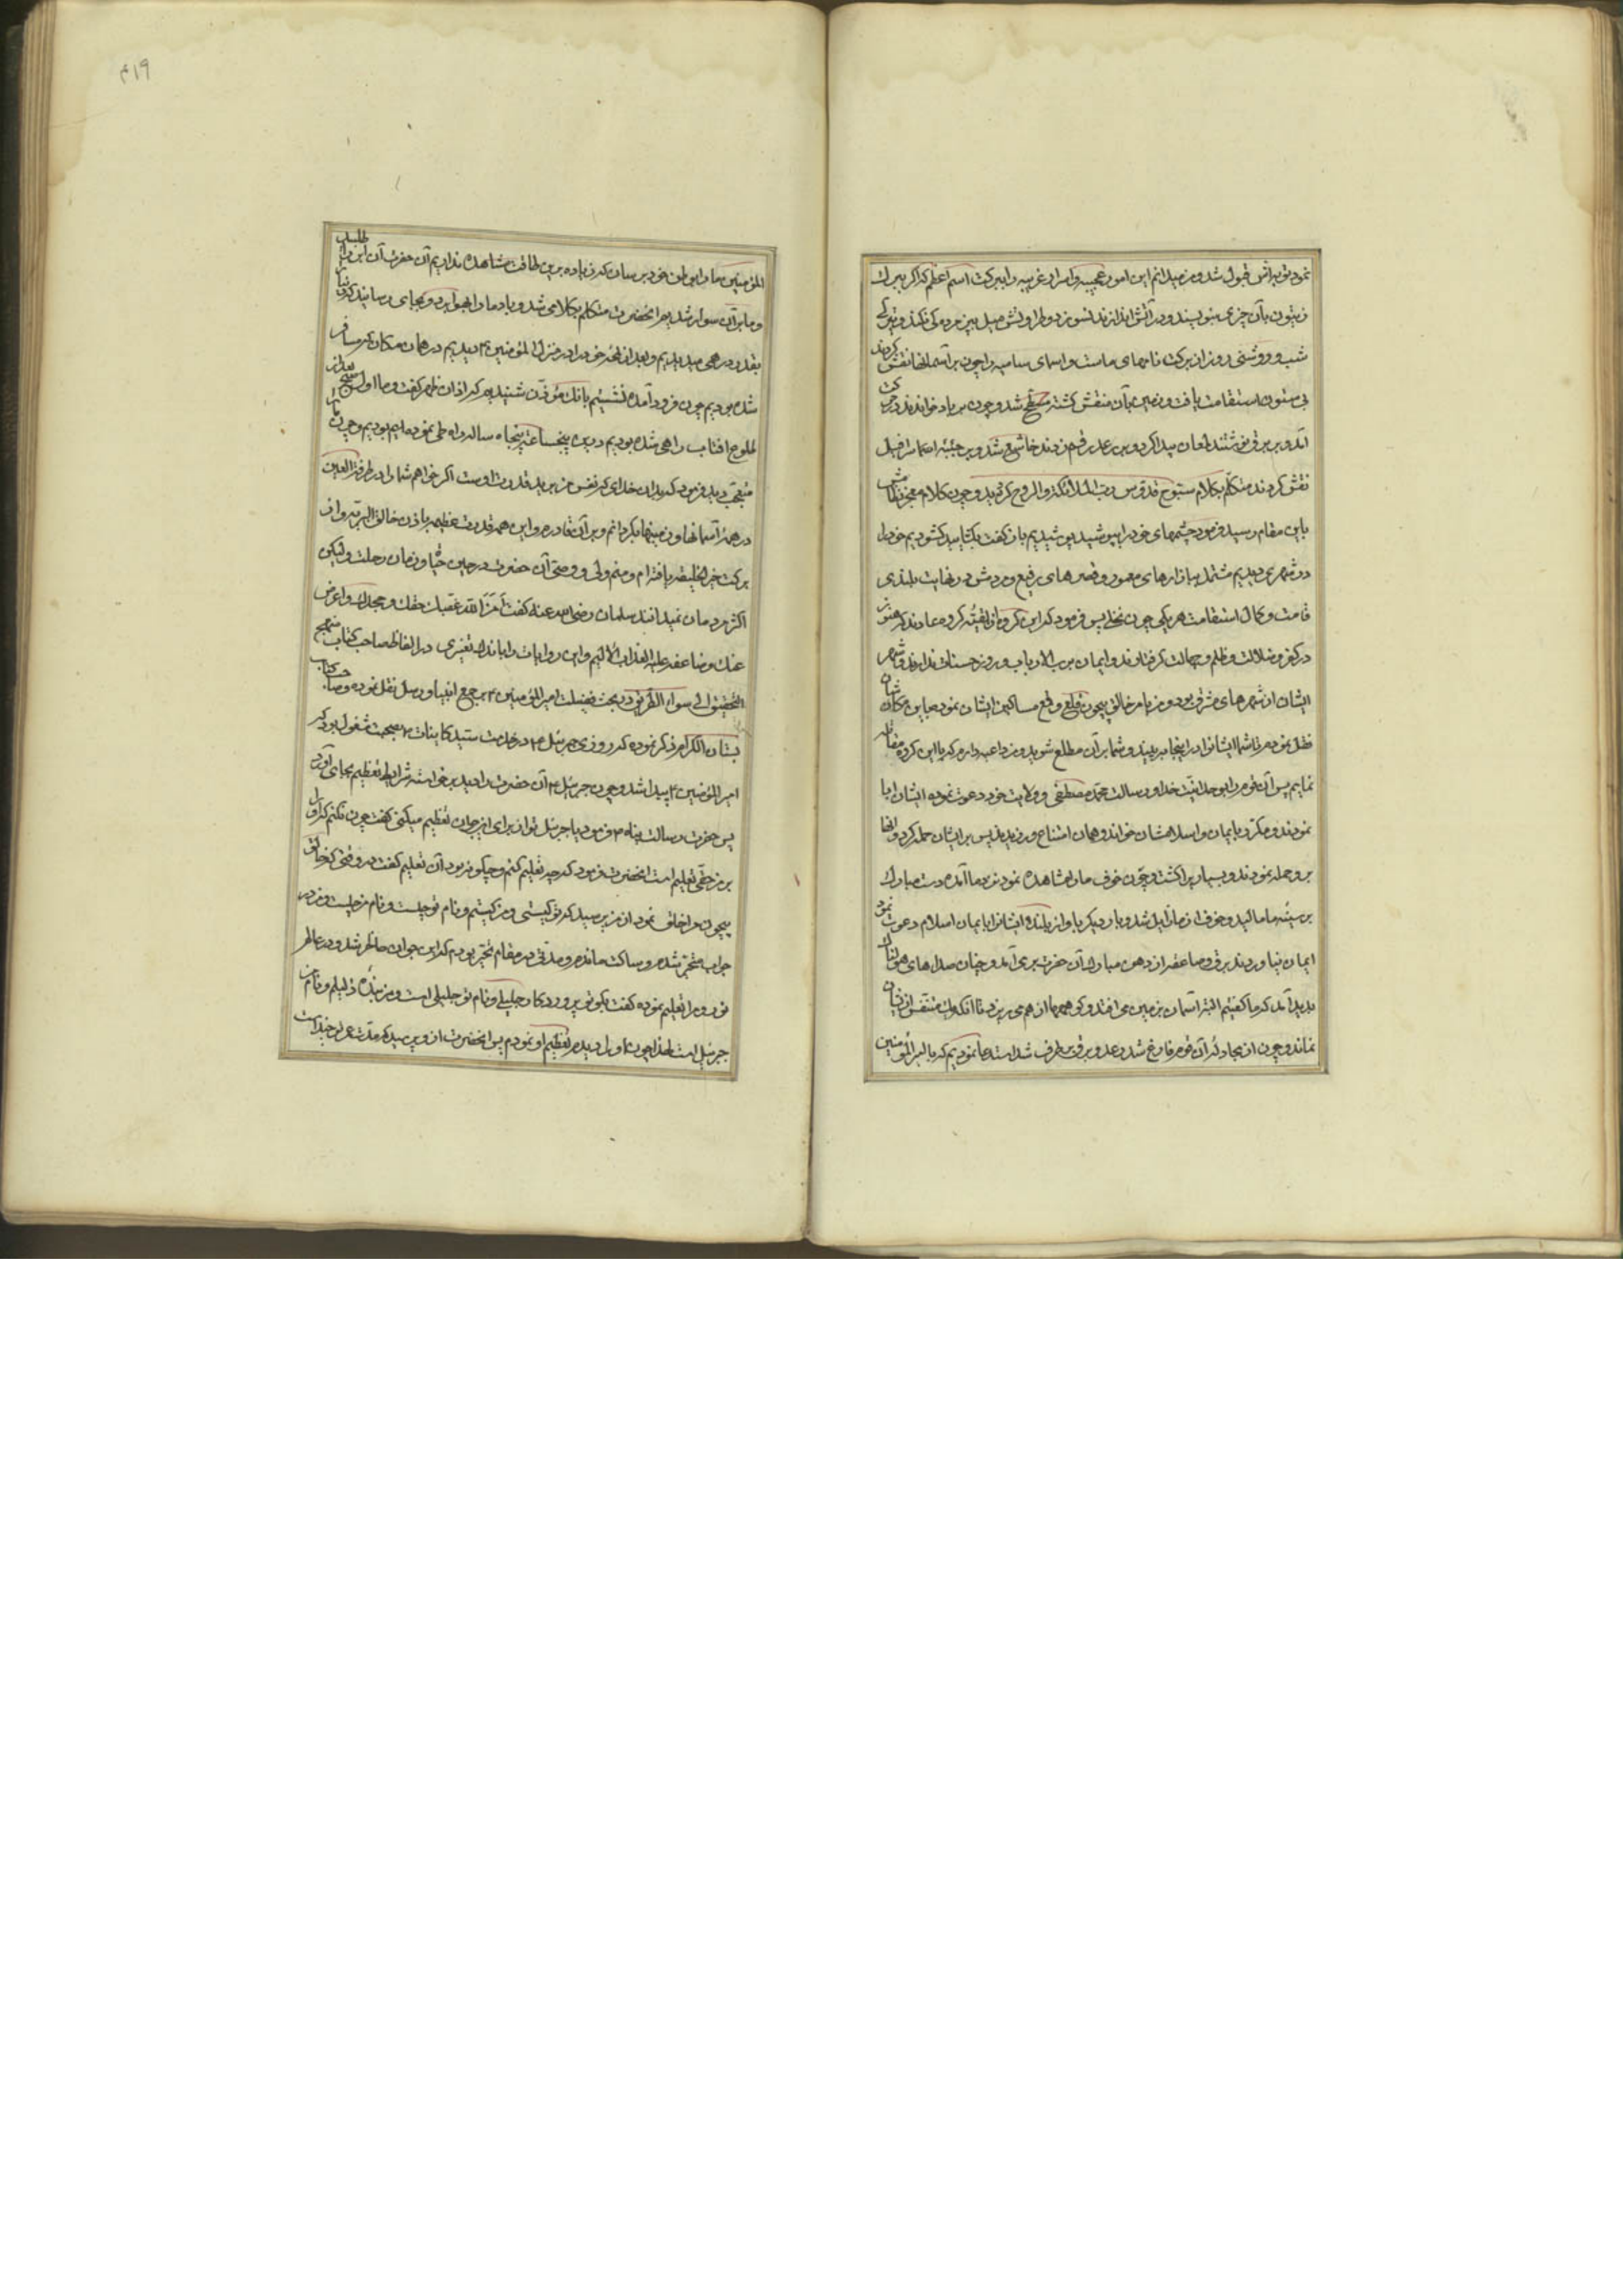 نمود توبه‌اش قبول شد و من میدانم این امور عجیبه و اسرار غریبه را ببرکت اسم اعظم که اگر ببرک
زیتون بآن چیزی بنویسند و در آتش اندازند نسوزد و
شب و روشنی روز از برکت نامهای ماست و اسمای سامیه را چون بر آسمانها نقش کردند
بی ستون استقامت یافت و زمین بآن منقش کشته مسطح شد و چون بر باد خواندند در حرکت
آمد و بر برق نوشتند لمعان پیدا کرد و بر رعد رقم زدند خاشع شد و بر جبهه اسرافیل
نقش کردند متکلم بکلام سبوح قدوس رب الملائکة والروح کردید و چون کلام معجز نظامش
باین مقام رسید فرمود چشمهای خود را بپوشید پوشیدیم باز گفت بکشایید کشودیم خود را
در شهری دیدیم مشتمل ببازارهای معمور و قصرهای رفیع و مردمش در نهایت بلندی
قامت و کمال استقامت هر یکی چون نخلی پس فرمود که این کروه از بقیه کروه عادند که هنوز
در کفر و ضلالت و ظلم و جهالت گرفتارند و ایمان برب الارباب و روز حساب ندارند و شهر
ایشان از شهرهای مشرق بود و من بامر خالق بیچون قلع و قمع مساکین ایشان نموده باین مکان
نقل نمودم تا شما ایشانرا در اینجا ببینید و شما بر آن مطلع شوید و من داعیه دارم که با این کروه مقاتله
نمایم پس آن قوم را بوحدانیت خدا و رسالت محمد مصطفی و ولایت خود دعوت نموده ایشان ابا
نمودند و مکرر بایمان و اسلامشان خواند و همان امتناع ورزیدند پس بر ایشان حمله کرد و آنها
برو حمله نمودند و بسیار برا کشت و چون خوف ما را مشاهده نمود نزد ما آمده دست مبارک
بر سینه ما مالید و خوف از ما زایل شد و بار دیکر باواز بلند ایشانرا بایمان اسلام دعوت نمود
ایمان نیاوردند برق و صاعقه از دهن مبارک آن حضرت بر می‌آمد و چنان صداهای هولناک
پدید آمد که ما گفتیم البته آسمان بر زمین می افتد و کوهها از هم می‌ریزد تا آنکه یک متنفس از ایشان
نماند و چون از مجادله آن قوم فارغ شد و رعد و برق بر طرف شد استدعا نمودیم که یا امیر المؤمنین
المؤمنین ما را بوطن خود برسان که زیاده برین طاقت مشاهده نداریم آن حضرت آن ابر را طلبید
و ما بر آن سوار شدیم و آنحضرت متکلم بکلامی شد و باد ما را بهوا برد و بجای رسانید که دنیا
بقدر درهمی میدیدیم و بعد از لحظه خود را در منزل امیر المؤمنین ع دیدیم در همان مکان که مسافر
شده بودیم چون فرود آمده نشستیم بانک مؤذن شنیدیم که اذان ظهر گفت و ما اول صبح بعد از
طلوع افتاب راهی شده بودیم درین پنج ساعت پنجاه ساله راه طی نموده بودیم و چون ما را
متعجب دید فرمود که بدان خدای که نفس من بید قدرت اوست اگر خواهم شما را در طرفة العین
در همه آسمانها و زمینها بگردانم و بر آن قادرم و این همه قدرت عظیمه باذن خالق البریه و از
برکت خیر الخلیقه یافته‌ام و منم ولی و وصی آن حضرت در حین حیا و زمان رحلت ولیکن
اکثر مردمان نمیدانند سلمان رضی الله عنه گفت لعن الله غصبک حقک و جحدک و اعرض
عنک و ضاعف علیه العذاب الالیم و این روایات را باندک تغییری در الفاظ صاحب کتاب منهج
التحقیق الی سواء الطریق در بحث فضیلت امیر المؤمنین ع بر جمیع انبیا و رسل نقل نموده و صاحب کتاب
بستان الکرام ذکر نموده که روزی جبرئیل ع در خدمت سید کاینات ص بصحبت مشغول بود که
امیر المؤمنین ع پیدا شد و چون جبرئیل ع آن حضرت را دید برخواسته شرایط تعظیم بجای آورد
پس حضرت رسالت پناه ص فرمود یا جبرئیل تو از برای این جوان تعظیم میکنی گفت چون نکنم که او را
بر من حق تعلیم است آنحضرت فرمود که چه تعلیم کنم و چگونه بود آن تعلیم گفت در وقتی که خالق
بیچون مرا خلق نمود از من پرسید که تو کیستی و من کیستم و نام تو چیست و نام من چیست و من در
جواب متحیر شدم و ساکت ماندم و مدتی در مقام تحیر بودم که این جوان حاضر شد و در عالم
نور مرا تعلیم نموده گفت بگو تو پروردگار جلیلی و نام تو جلیل است و من بنده ذلیلم و نام من
جبرئیل است لهذا چون او را دیدم تعظیم او نمودم پس آنحضرت از و پرسید که مدت عمر تو چند است
۴۱۹